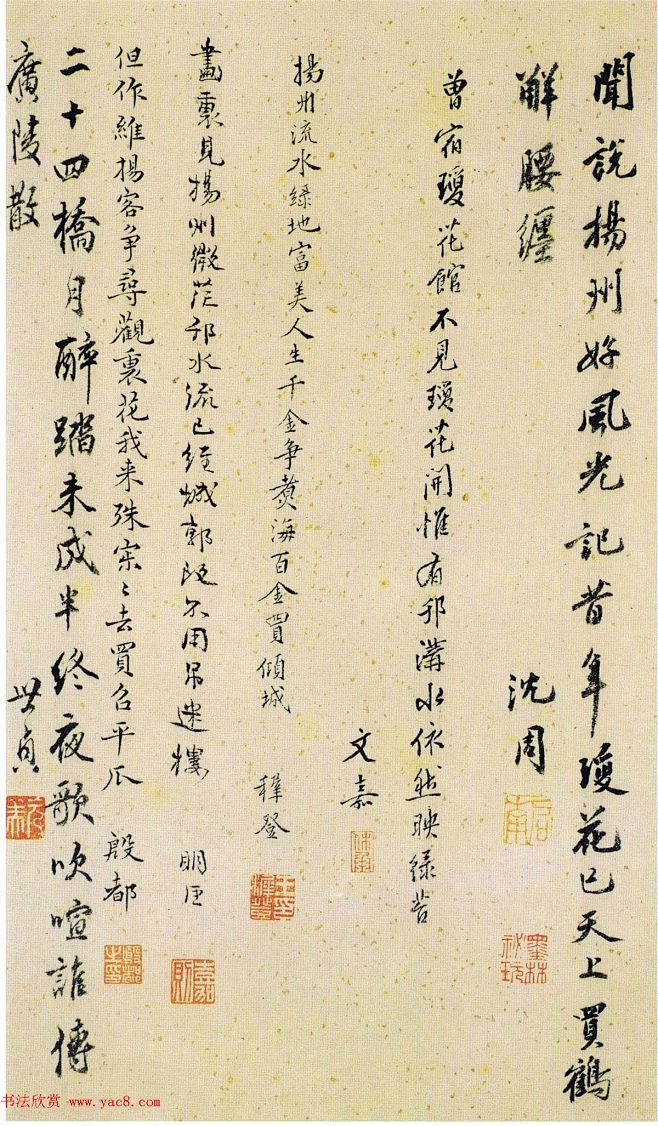 聞說揚州好風光記昔年瓊花已天上買鶴
解腰纏
沈周
啟南
墨林祕玩
曾宿瓊花館不見瓊花開惟有邗溝水依然映綠苔
文嘉
休承
揚州流水綠地富美人生千金爭煑海百金買傾城
穉登
畫裏見揚州微茫邗水流已經城郭改不用吊迷樓
明臣
嘉則
但作維揚客爭尋觀裏花我來殊寂〻去買召平瓜
殷都
殷都之印
二十四橋月醉踏未成半終夜歌吹喧誰傳
廣陵散
世貞
元美
书法欣赏 www.yac8.com